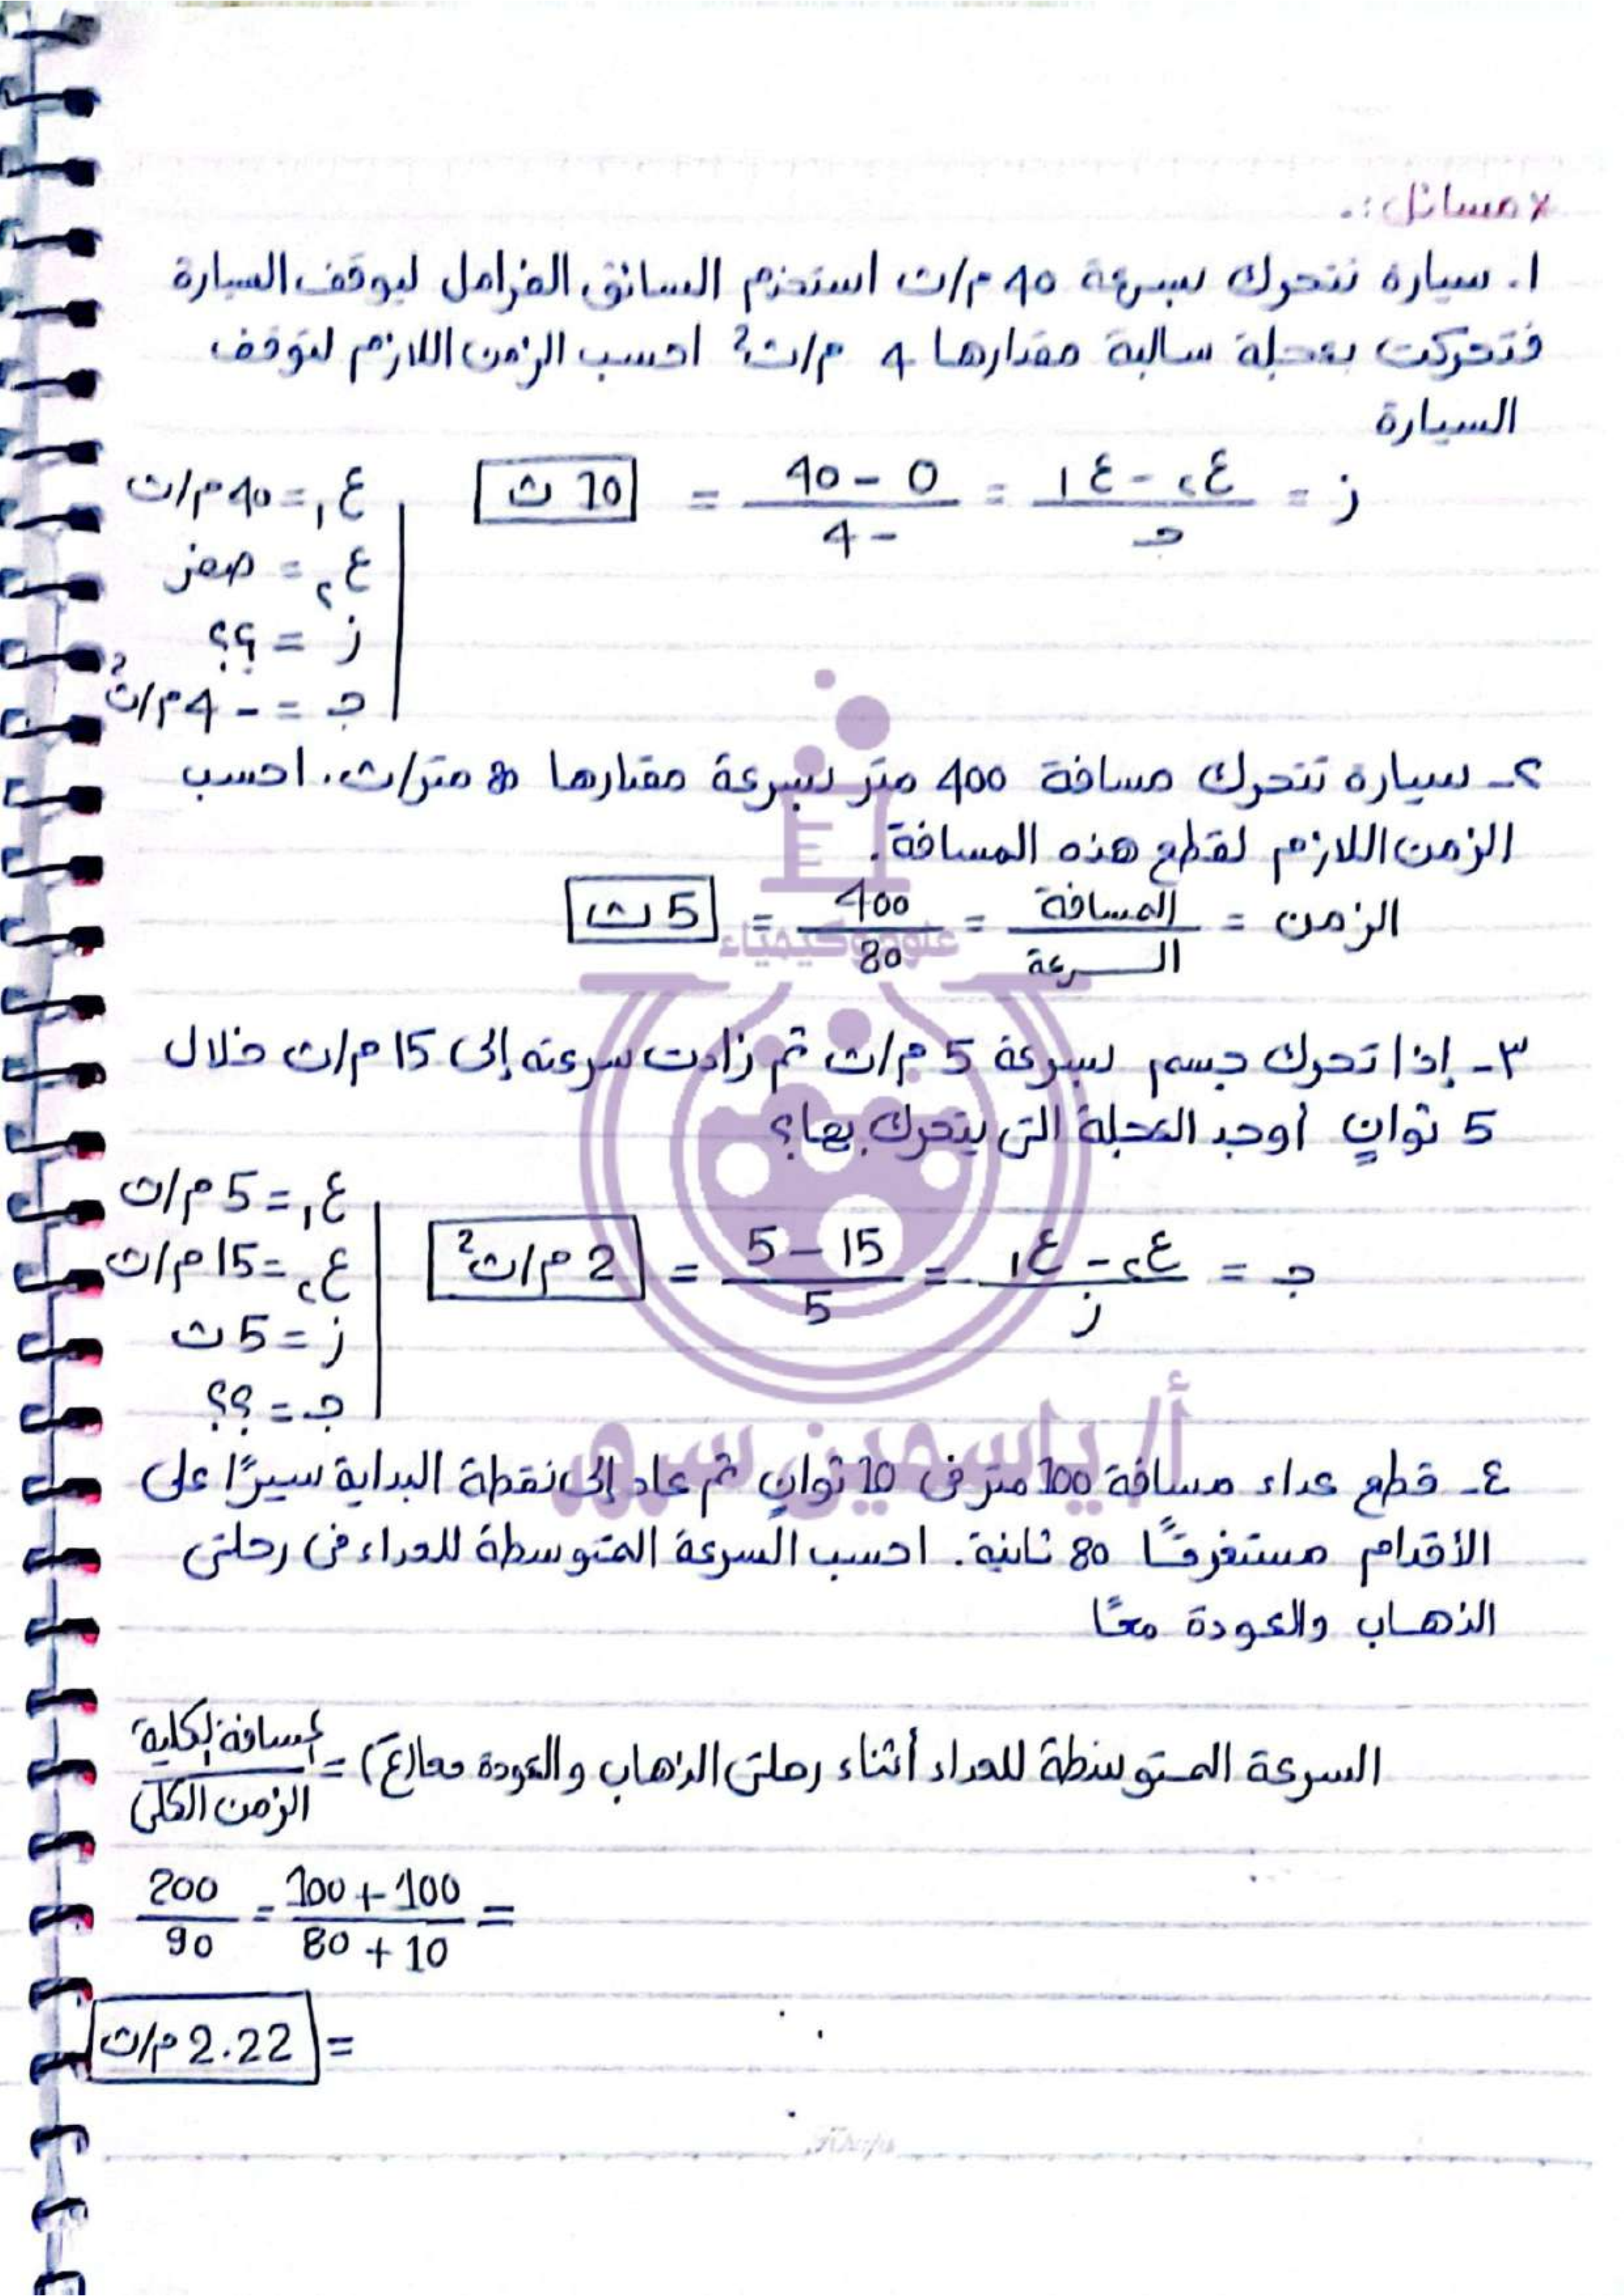 × مسائل :.
١. سيارة تتحرك بسرعة 40 م/ث استخدم السائق الفرامل ليوقف السيارة
فتحركت بعجلة سالبة مقدارها 4 م/ث² احسب الزمن اللازم لتوقف
السيارة
ز = (ع₂ - ع₁) / جـ = (0 - 40) / (-4) = 10 ث
ع₁ = 40 م/ث
ع₂ = صفر
ز = ؟؟
جـ = - 4 م/ث²
٢- سيارة تتحرك مسافة 400 متر بسرعة مقدارها 80 متر/ث. احسب
الزمن اللازم لقطع هذه المسافة.
الزمن = المسافة / السرعة = 400 / 80 = 5 ث
علوم وكيمياء
٣- إذا تحرك جسم بسرعة 5 م/ث ثم زادت سرعته إلى 15 م/ث خلال
5 ثوانٍ أوجد العجلة التى يتحرك بها؟
جـ = (ع₂ - ع₁) / ز = (15 - 5) / 5 = 2 م/ث²
ع₁ = 5 م/ث
ع₂ = 15 م/ث
ز = 5 ث
جـ = ؟؟
أ/ ياسمين
٤- قطع عداء مسافة 100 متر فى 10 ثوانٍ ثم عاد إلى نقطة البداية سيرًا على
الأقدام مستغرقًا 80 ثانية. احسب السرعة المتوسطة للعداء فى رحلتى
الذهاب والعودة معًا
السرعة المتوسطة للعداء أثناء رحلتى الذهاب والعودة معا (ع) = المسافة الكلية / الزمن الكلى
= (100 + 100) / (10 + 80) = 200 / 90
= 2.22 م/ث